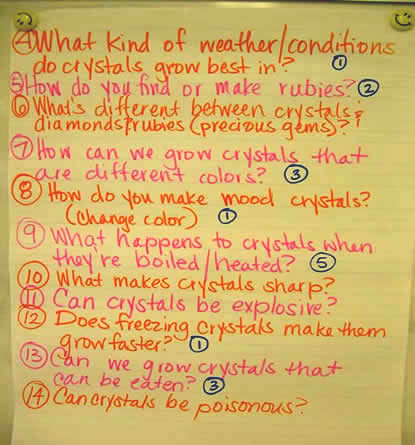 ④What kind of weather/conditions
do crystals grow best in? ①
⑤How do you find or make rubies? ②
⑥What's different between crystals &
diamonds/rubies (precious gems)?
⑦ How can we grow crystals that
are different colors? ③
⑧ How do you make mood crystals?
(change color) ①
⑨ What happens to crystals when
they're boiled/heated? ⑤
⑩ What makes crystals sharp?
⑪ Can crystals be explosive?
⑫ Does freezing crystals make them
grow faster? ①
⑬ Can we grow crystals that
can be eaten? ③
⑭ Can crystals be poisonous?